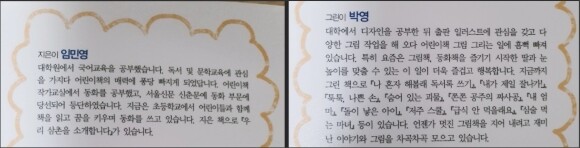 지은이 임민영
대학원에서 국어교육을 공부했습니다. 독서 및 문학교육에 관심
을 가지다 어린이책의 매력에 퐁당 빠지게 되었답니다. 어린이책
작가교실에서 동화를 공부했고, 서울신문 신춘문예 동화 부문에
당선되어 등단하였습니다. 지금은 초등학교에서 어린이들과 함께
책을 읽고 꿈을 키우며 동화를 쓰고 있습니다. 지은 책으로 『우
리 삼촌을 소개합니다』가 있습니다.
그린이 박영
대학에서 디자인을 공부한 뒤 출판 일러스트에 관심을 갖고 다
양한 그림 작업을 해 오다 어린이책 그림 그리는 일에 흠뻑 빠져
있습니다. 특히 요즘은 그림책, 동화책을 즐기기 시작한 딸과 눈
높이를 맞출 수 있는 이 일이 더욱 즐겁고 행복합니다. 지금까지
그린 책으로 『나 혼자 해볼래 독서록 쓰기』, 『내가 제일 잘나가』,
『뚝뚝, 나쁜 손』, 『숨어 있는 괴물』, 『콘콘 공주의 짜사꽁』, 『내 엄
마』, 『돌이 낳은 아이』, 『저주 스쿨』, 『급식 안 먹을래요』, 『삼십 먹
는 마녀』 등이 있습니다. 언젠가 멋진 그림책을 지어 내려고 재미
난 이야기와 그림을 차곡차곡 모으고 있습니다.